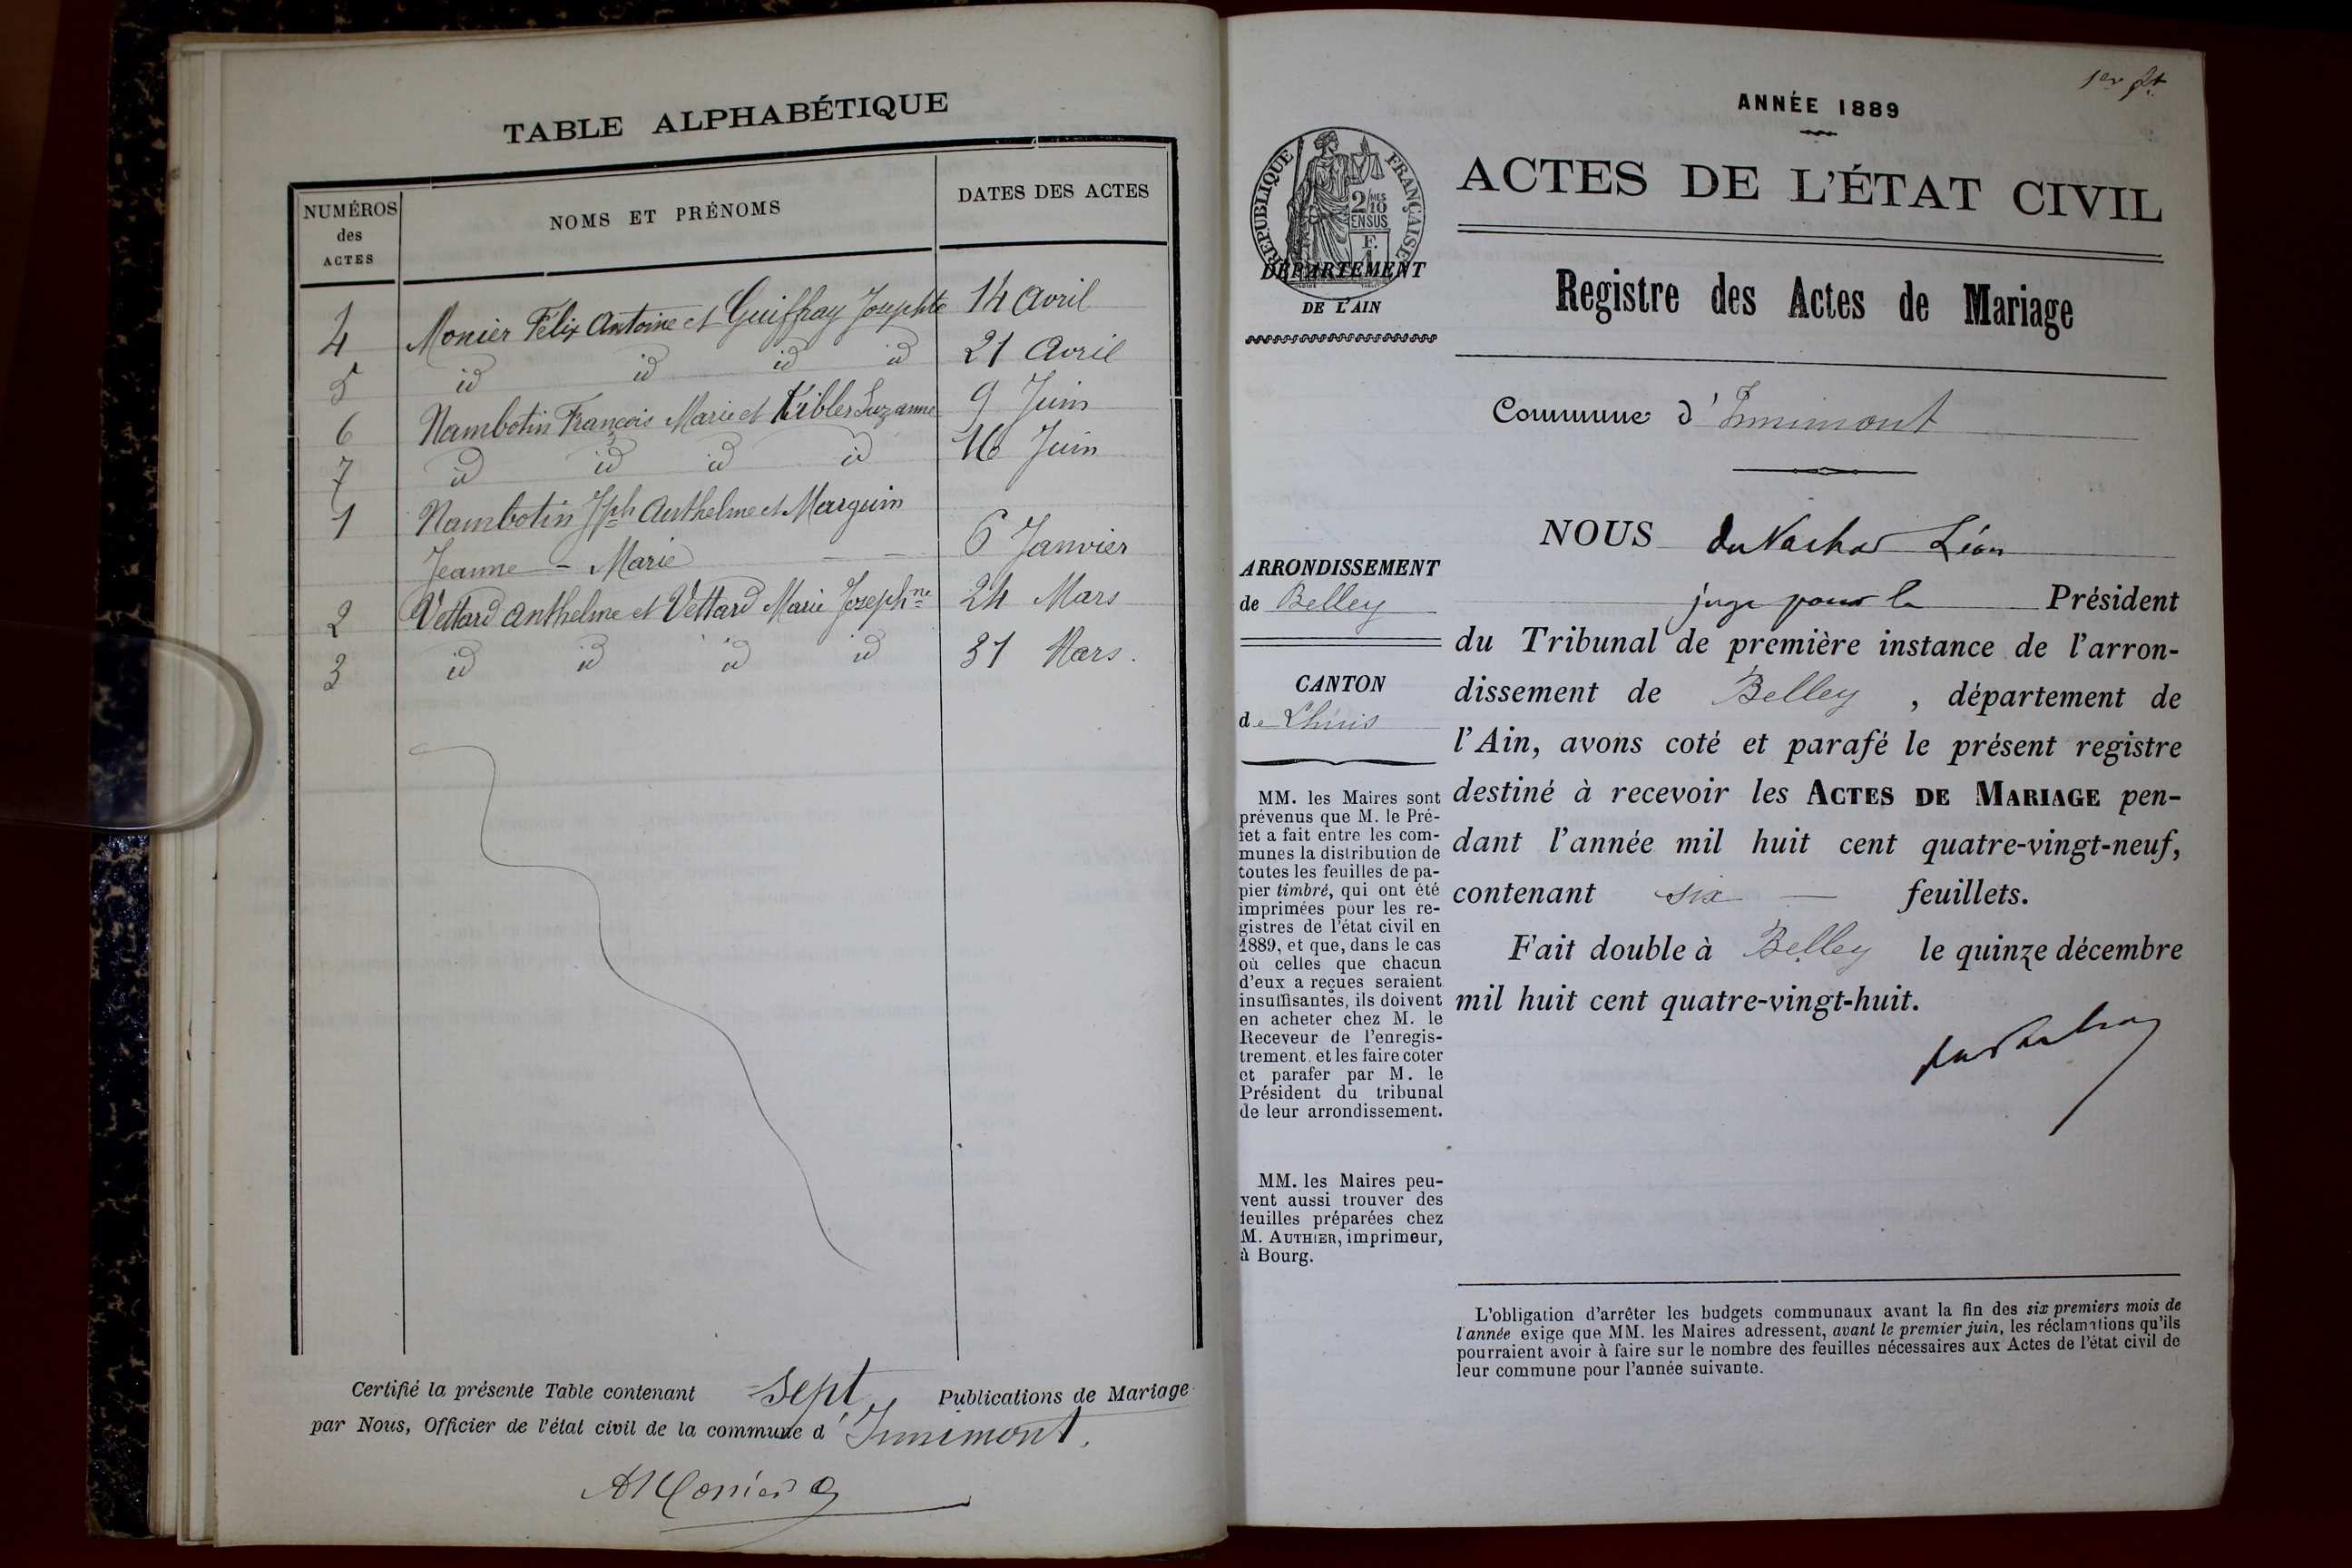 TABLE ALPHABÉTIQUE
NUMÉROS des ACTES
NOMS ET PRÉNOMS
DATES DES ACTES
4 Monier Félix Antoine et Guiffray Josephte 14 Avril
5 id id id id 21 Avril
6 Nambotin François Marie et Kibler Suzanne 9 Juin
7 id id id id 16 Juin
1 Nambotin Jph Anthelme et Marguin
Jeanne - Marie 6 Janvier
2 Vettard Anthelme et Vettard Marie Josephne 24 Mars
3 id id id id 31 Mars.
Certifié la présente Table contenant sept Publications de Mariage
par Nous, Officier de l'état civil de la commune d'Innimont.
AMonier
1er ft
ANNÉE 1889
RÉPUBLIQUE FRANÇAISE
2/10 MES
EN SUS
DÉPARTEMENT
DE L'AIN
ACTES DE L'ÉTAT CIVIL
Registre des Actes de Mariage
Commune d'Innimont
ARRONDISSEMENT
de Belley
CANTON
de Lhuis
MM. les Maires sont
prévenus que M. le Pré-
fet a fait entre les com-
munes la distribution de
toutes les feuilles de pa-
pier timbré, qui ont été
imprimées pour les re-
gistres de l'état civil en
1889, et que, dans le cas
où celles que chacun
d'eux a reçues seraient
insuffisantes, ils doivent
en acheter chez M. le
Receveur de l'enregis-
trement, et les faire coter
et parafer par M. le
Président du tribunal
de leur arrondissement.
MM. les Maires peu-
vent aussi trouver des
feuilles préparées chez
M. AUTHIER, imprimeur,
à Bourg.
NOUS Léon
juge pour le Président
du Tribunal de première instance de l'arron-
dissement de Belley, département de
l'Ain, avons coté et parafé le présent registre
destiné à recevoir les ACTES DE MARIAGE pen-
dant l'année mil huit cent quatre-vingt-neuf,
contenant six — feuillets.
Fait double à Belley le quinze décembre
mil huit cent quatre-vingt-huit.
L'obligation d'arrêter les budgets communaux avant la fin des six premiers mois de
l'année exige que MM. les Maires adressent, avant le premier juin, les réclamations qu'ils
pourraient avoir à faire sur le nombre des feuilles nécessaires aux Actes de l'état civil de
leur commune pour l'année suivante.